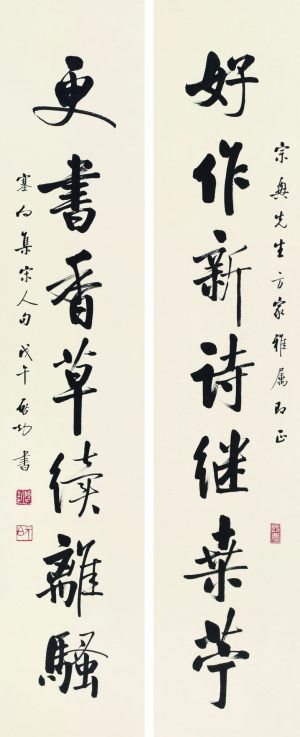 宗兴先生方家雅属即正
好作新诗继桑苧
更书香草续离骚
塞向集宗人句戊午启功书